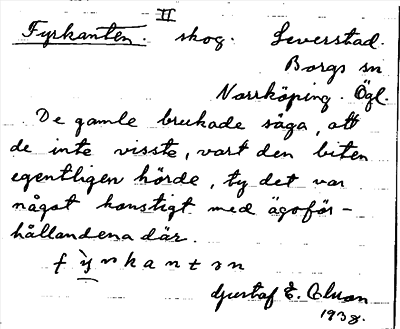 II
Fyrkanten. skog. Leverstad.
Borgs sn
Norrköping. Ögl.
De gamle brukade säga, att
de inte visste, vart den biten
egentligen hörde, ty det var
något konstigt med ägoför-
hållandena där.
Gustaf E.
1938.